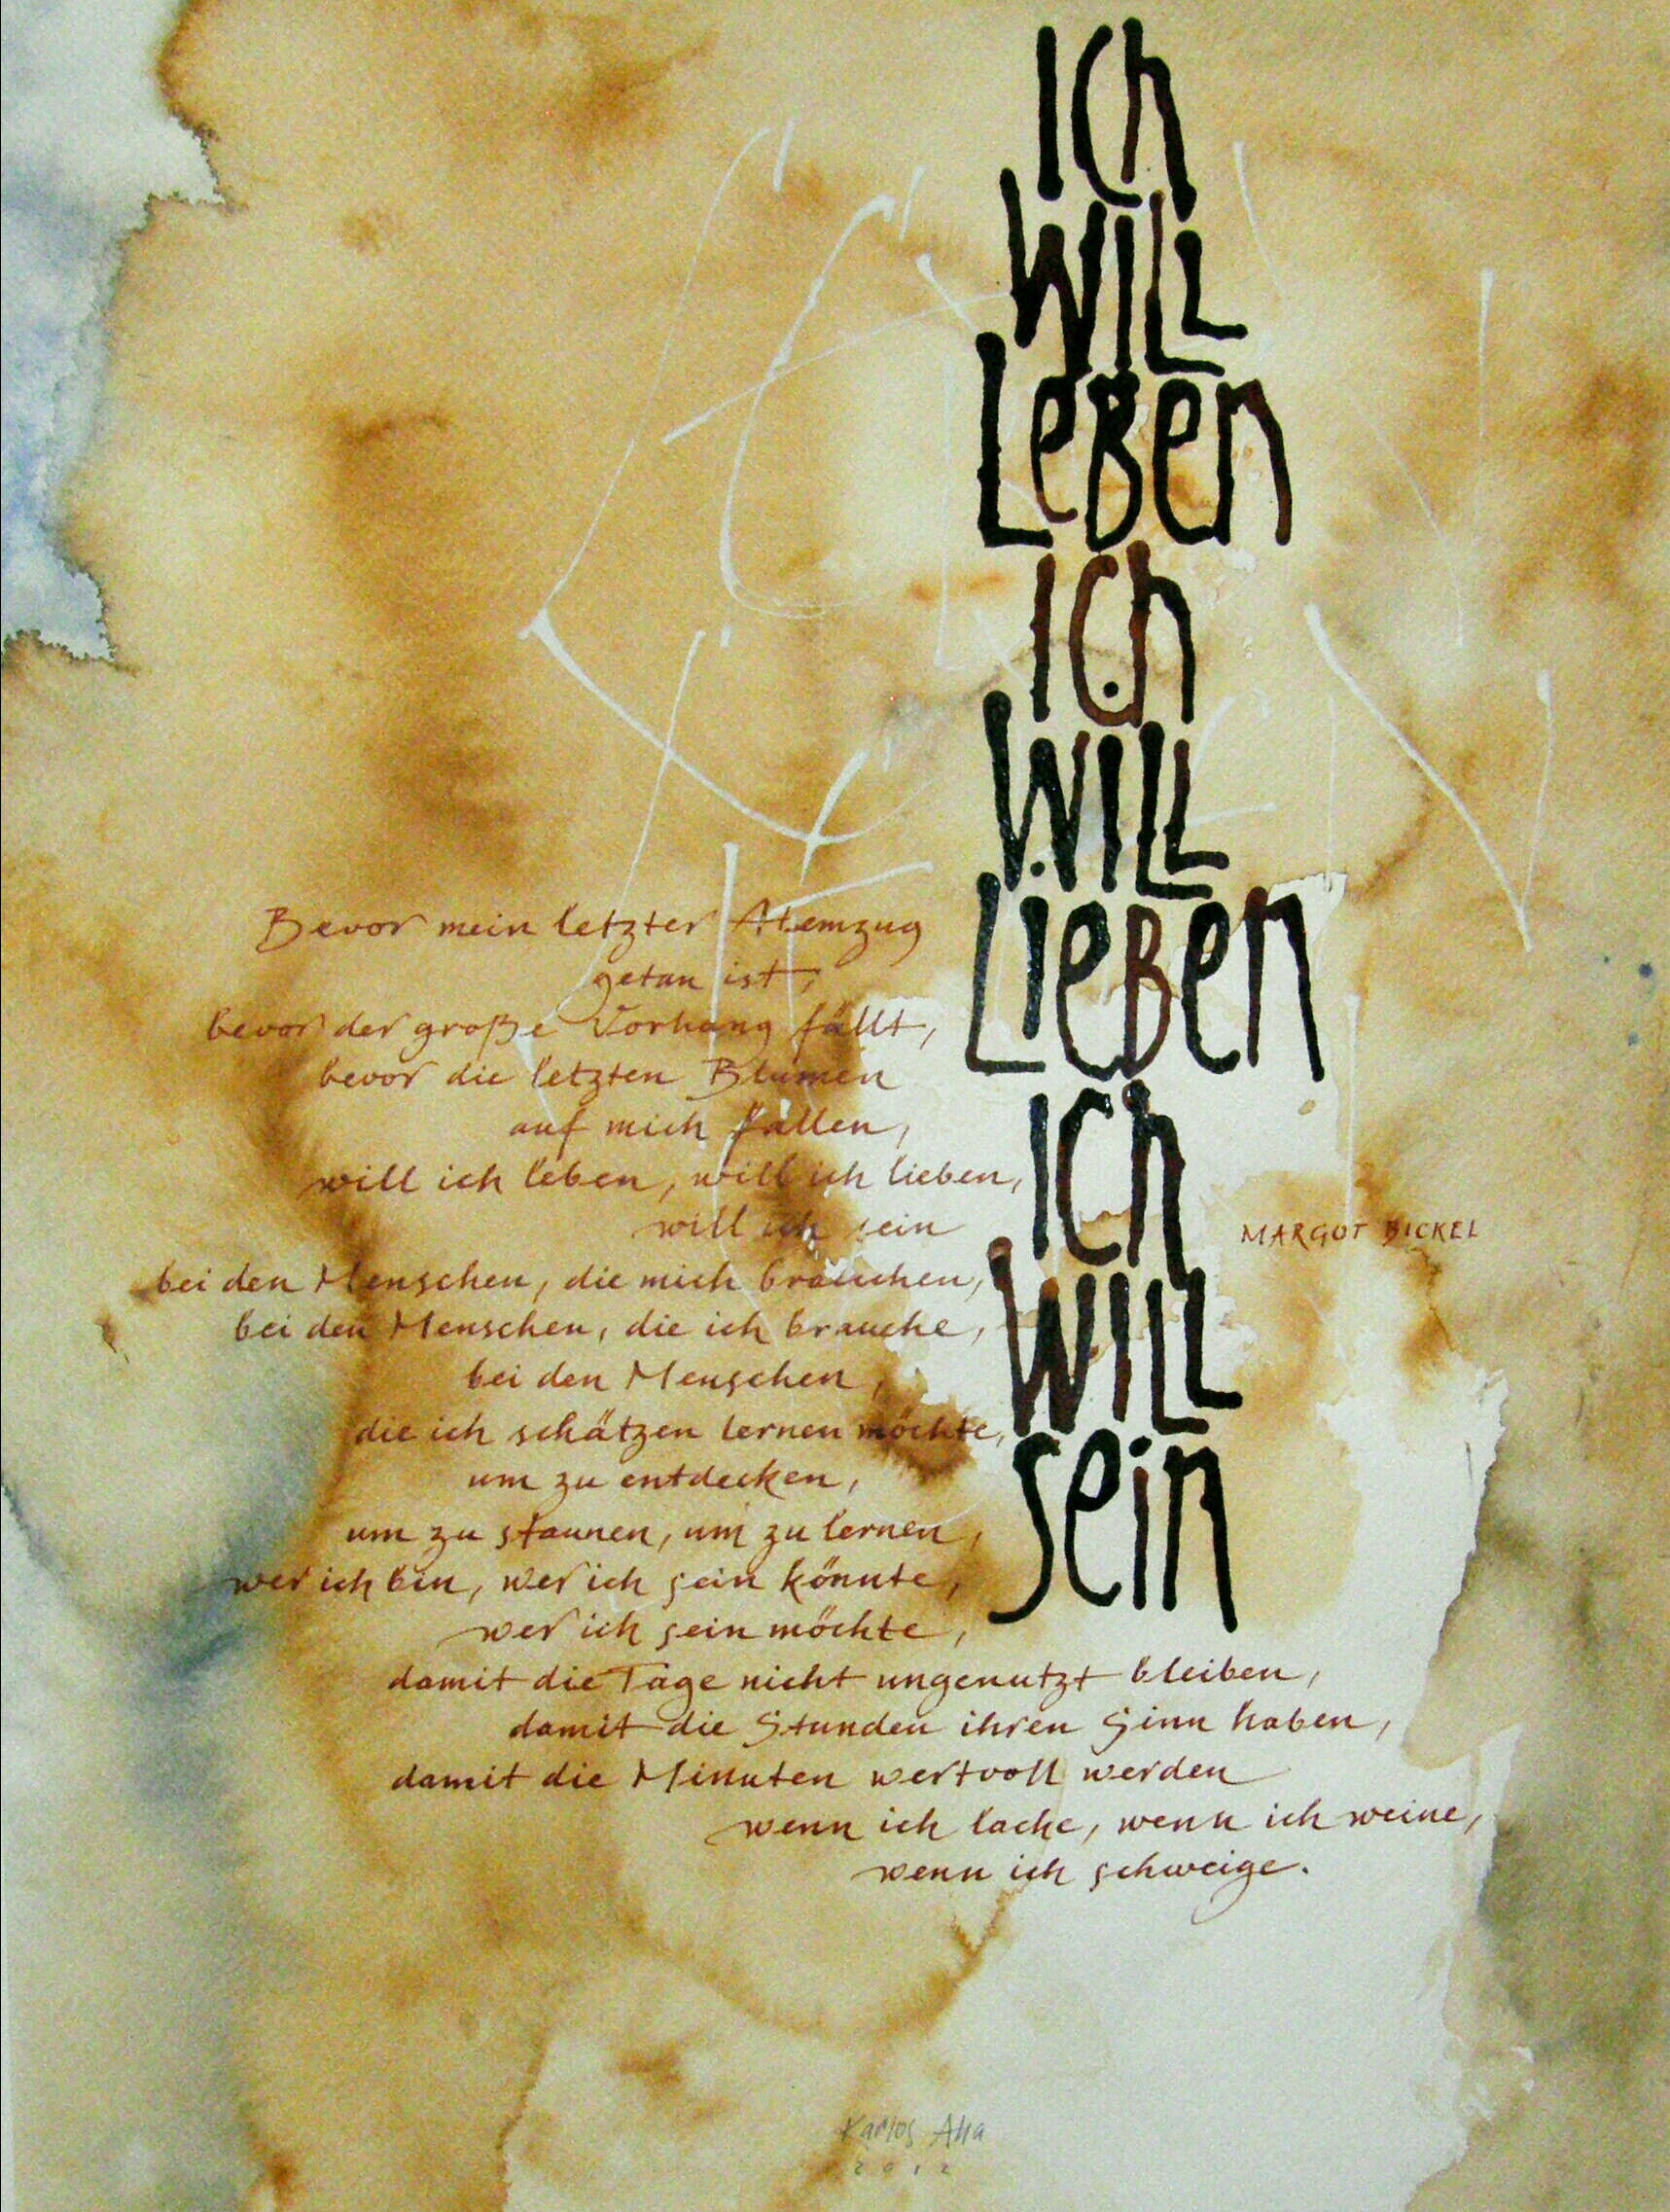 Ich
will
leben
ich
will
lieben
ich
will
sein
Bevor mein letzter Atemzug
getan ist,
bevor der große Vorhang fällt,
bevor die letzten Blumen
auf mich fallen,
will ich leben, will ich lieben,
will ich sein
MARGOT BICKEL
bei den Menschen, die mich brauchen,
bei den Menschen, die ich brauche,
bei den Menschen,
die ich schätzen lernen möchte,
um zu entdecken,
um zu staunen, um zu lernen,
wer ich bin, wer ich sein könnte,
wer ich sein möchte,
damit die Tage nicht ungenutzt bleiben,
damit die Stunden ihren Sinn haben,
damit die Minuten wertvoll werden
wenn ich lache, wenn ich weine,
wenn ich schweige.
Karlos
2012